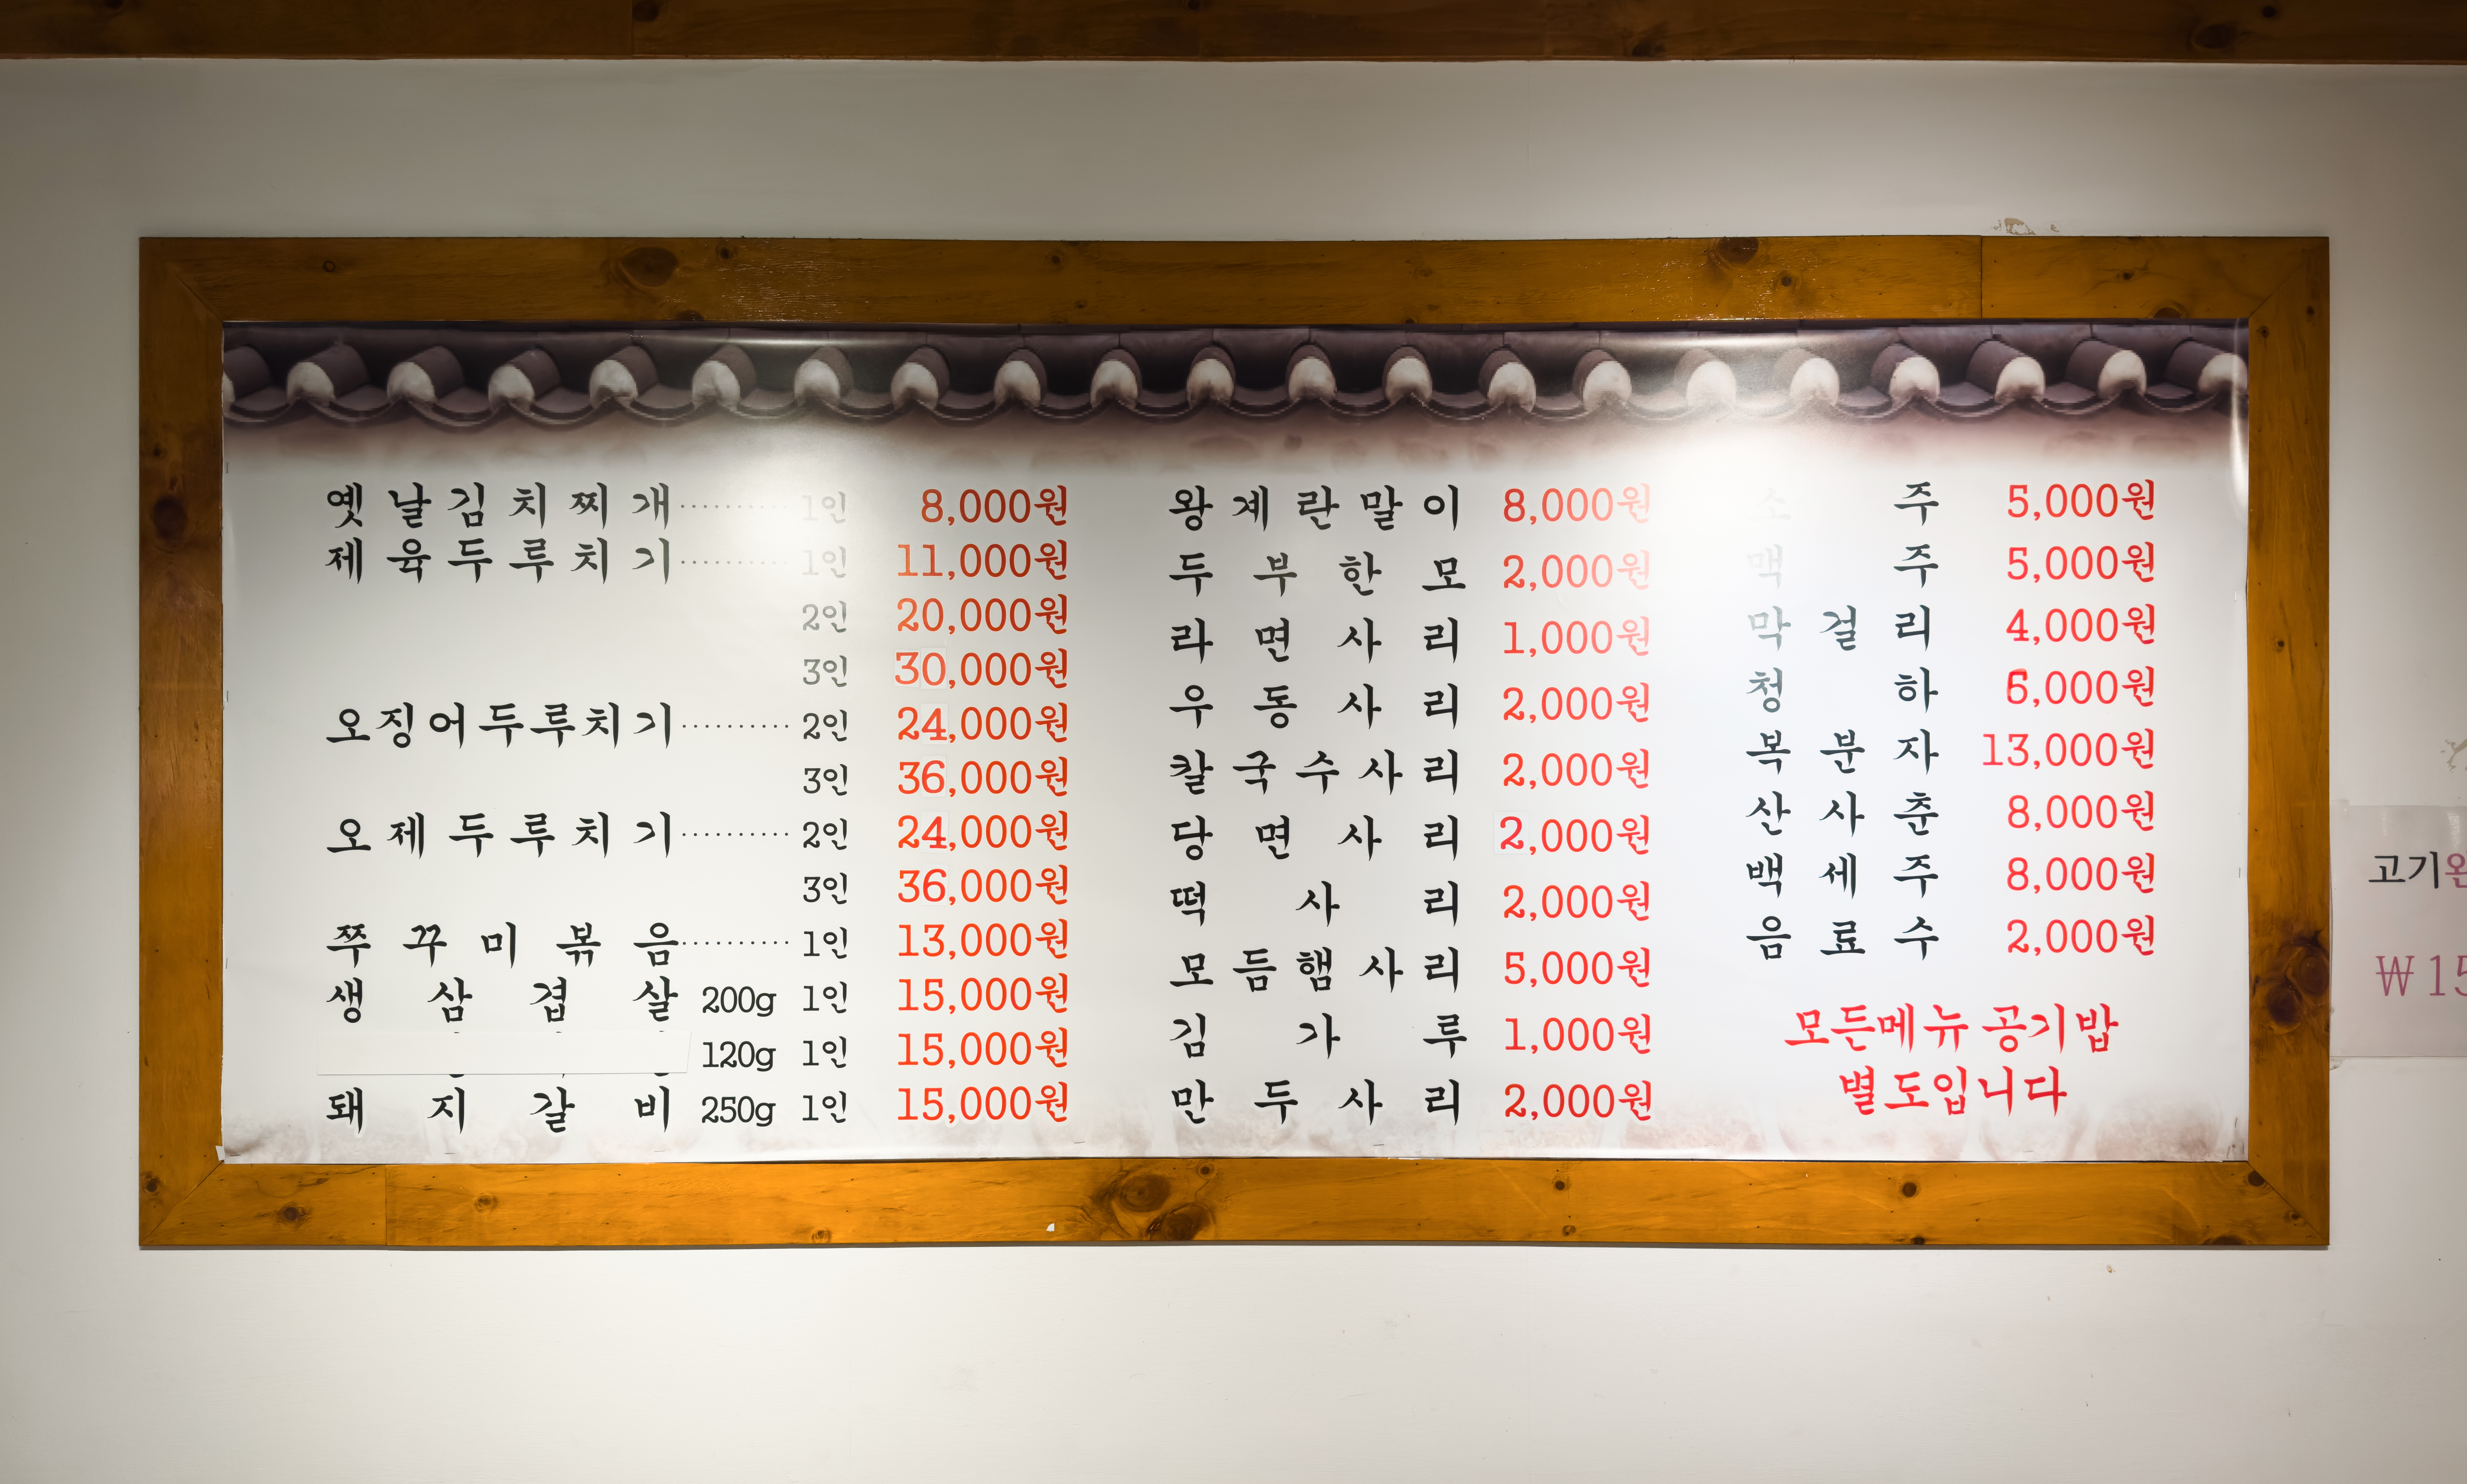 옛날김치찌개·········· 1인 8,000원
제육두루치기·········· 1인 11,000원
2인 20,000원
3인 30,000원
오징어두루치기·········· 2인 24,000원
3인 36,000원
오제두루치기·········· 2인 24,000원
3인 36,000원
쭈꾸미볶음·········· 1인 13,000원
생삼겹살 200g 1인 15,000원
120g 1인 15,000원
돼지갈비 250g 1인 15,000원
왕계란말이 8,000원
두부한모 2,000원
라면사리 1,000원
우동사리 2,000원
칼국수사리 2,000원
당면사리 2,000원
떡사리 2,000원
모듬햄사리 5,000원
김가루 1,000원
만두사리 2,000원
소주 5,000원
맥주 5,000원
막걸리 4,000원
청하 6,000원
복분자 13,000원
산사춘 8,000원
백세주 8,000원
음료수 2,000원
모든메뉴 공기밥
별도입니다
고기
₩15